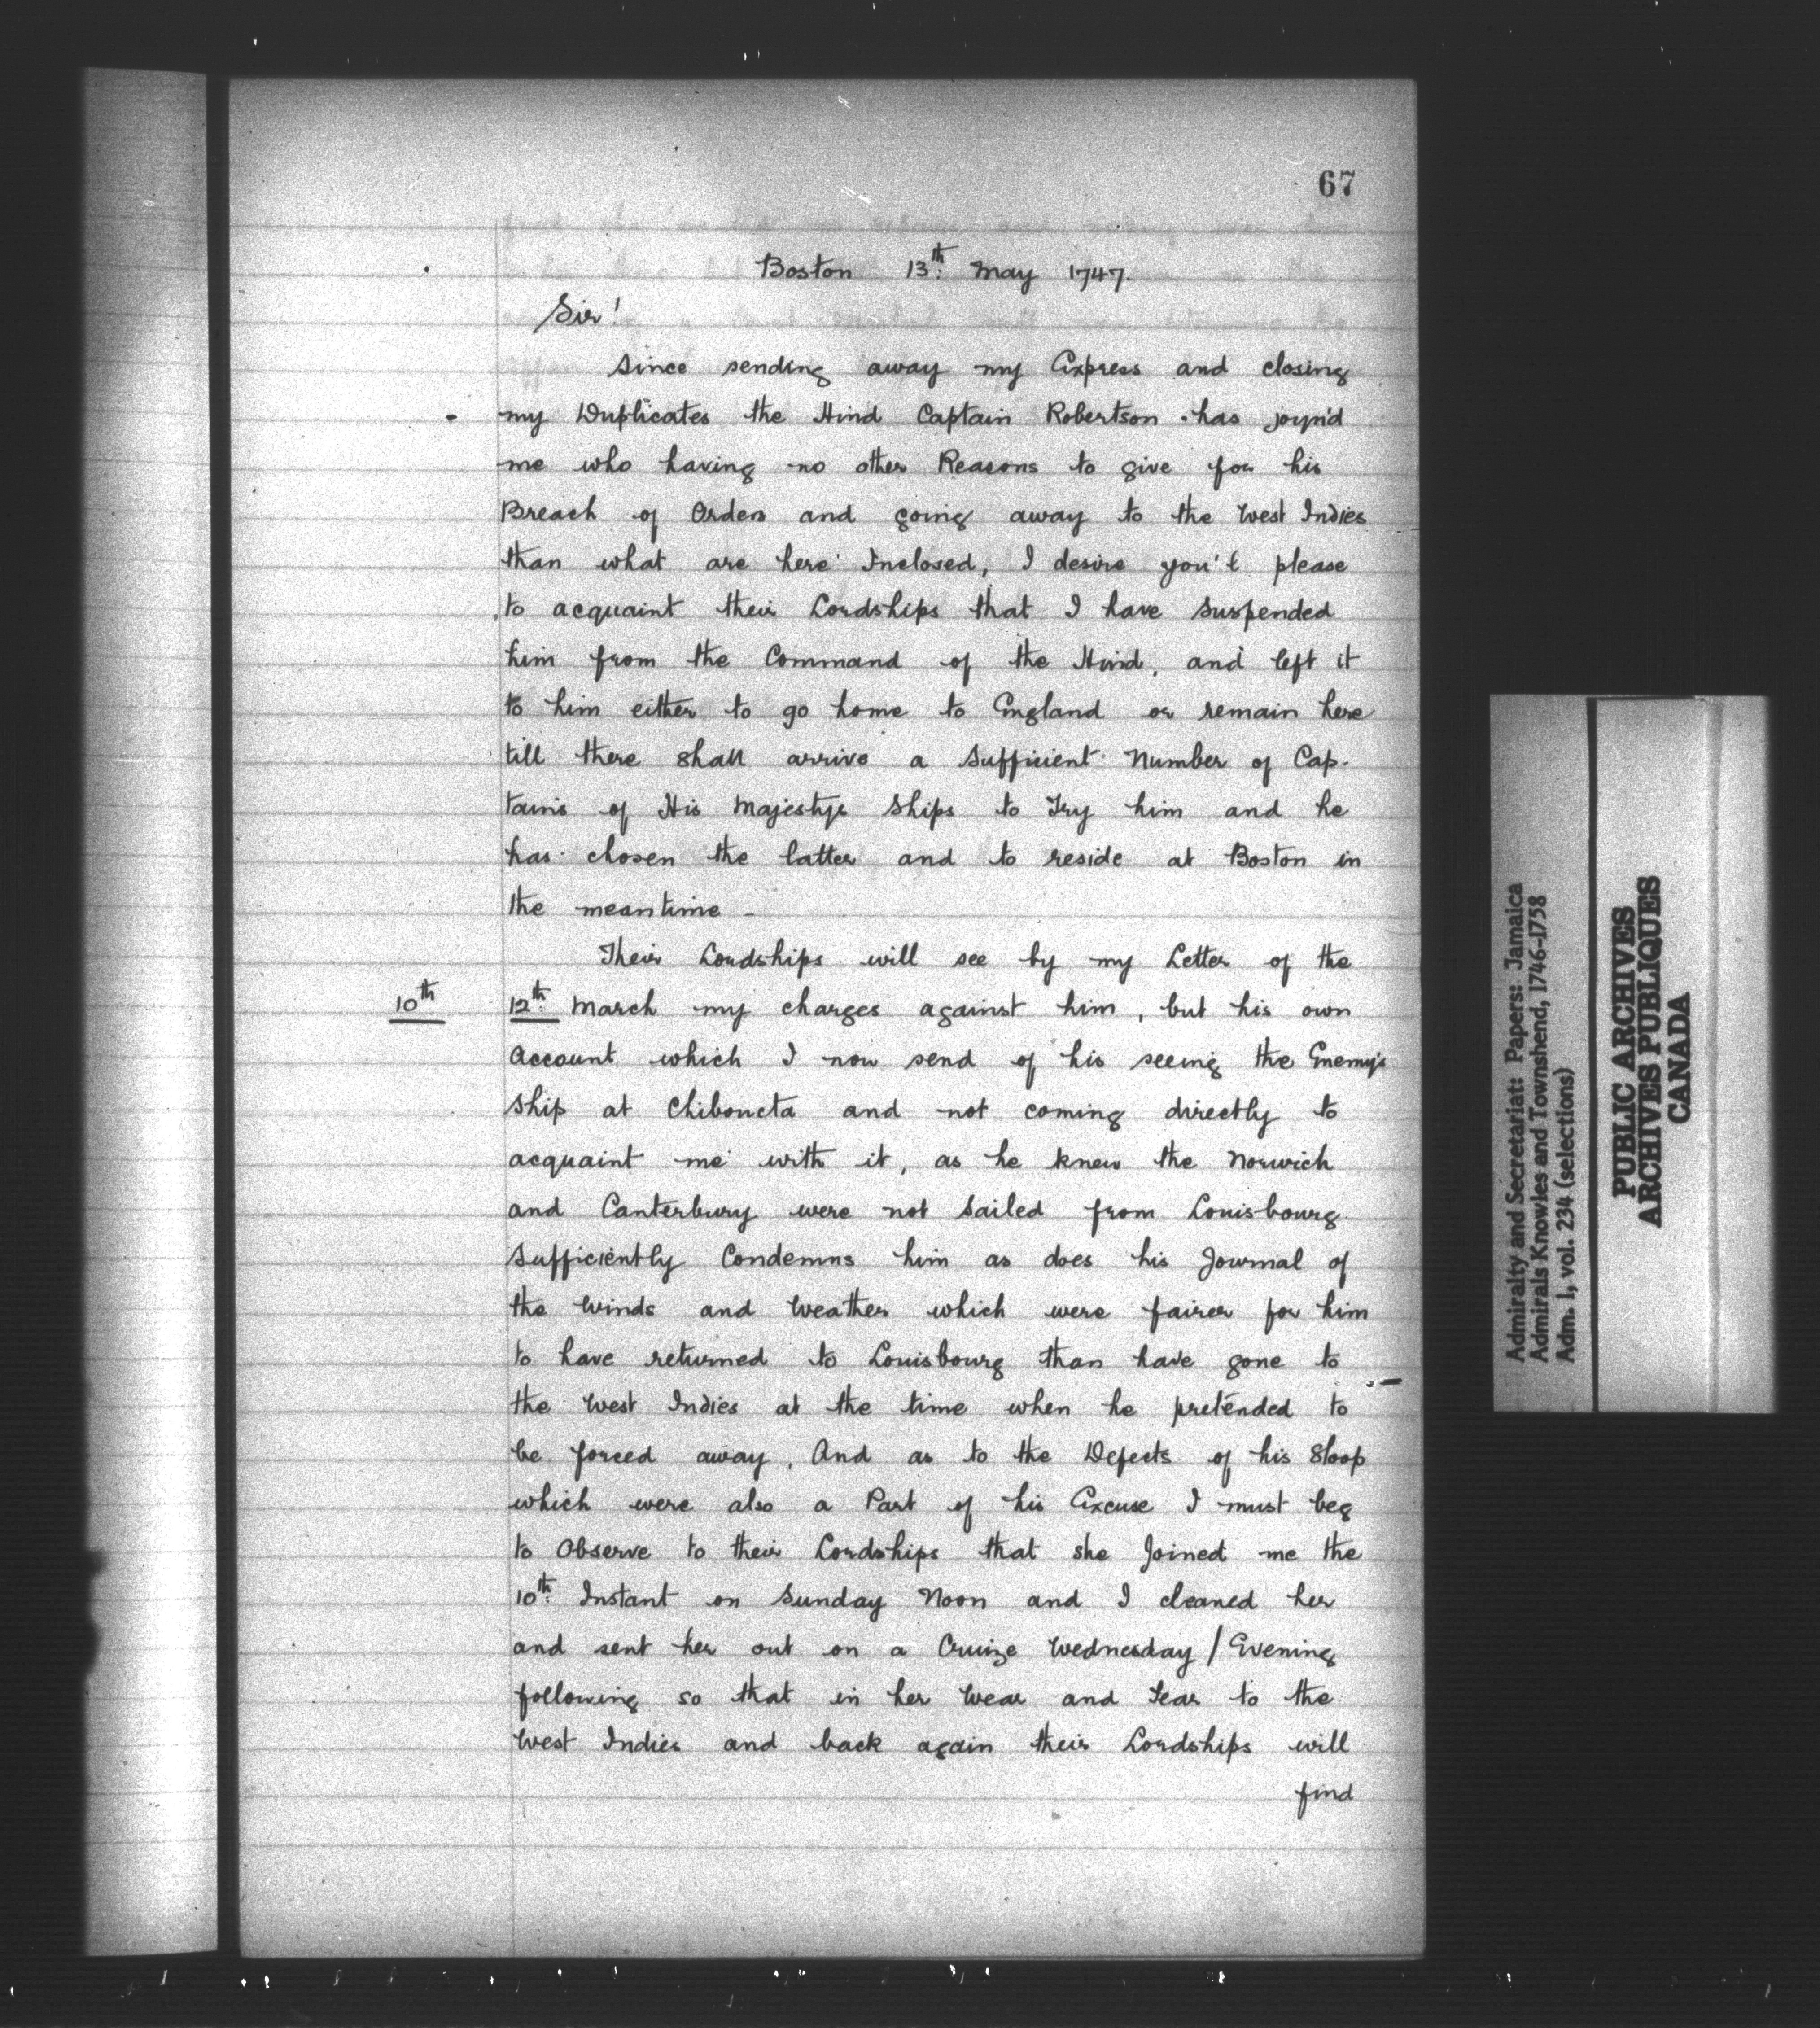 67
Boston 13th: May 1747.
Sir!
Since sending away my Express and closing
my Duplicates the Hind Captain Robertson has joyn'd
me who having no other Reasons to give for his
Breach of Orders and going away to the West Indies
than what are here Inclosed, I desire you'l please
to acquaint their Lordships that I have suspended
him from the Command of the Hind, and left it
to him either to go home to England or remain here
till there shall arrive a Sufficient Number of Cap-
tains of His Majestys Ships to Try him and he
has chosen the latter and to reside at Boston in
the meantime -
Their Lordships will see by my Letter of the
10th 12th: March my charges against him, but his own
Account which I now send of his seeing the Enemy's
Ship at Chiboucta and not coming directly to
acquaint me with it, as he knew the Norwich
and Canterbury were not Sailed from Louisbourg
Sufficiently Condemns him as does his Journal of
the Winds and Weather which were fairer for him
to have returned to Louisbourg than have gone to
the West Indies at the time when he pretended to
be forced away, And as to the Defects of his Sloop
which were also a Part of his Excuse I must beg
to Observe to their Lordships that she Joined me the
10th: Instant on Sunday Noon and I cleaned her
and sent her out on a Cruize Wednesday / Evening
following so that in her Wear and Tear to the
West Indies and back again their Lordships will
find
Admiralty and Secretariat: Papers: Jamaica
Admirals Knowles and Townshend, 1746-1758
Adm. 1, vol. 234 (selections)
PUBLIC ARCHIVES
ARCHIVES PUBLIQUES
CANADA